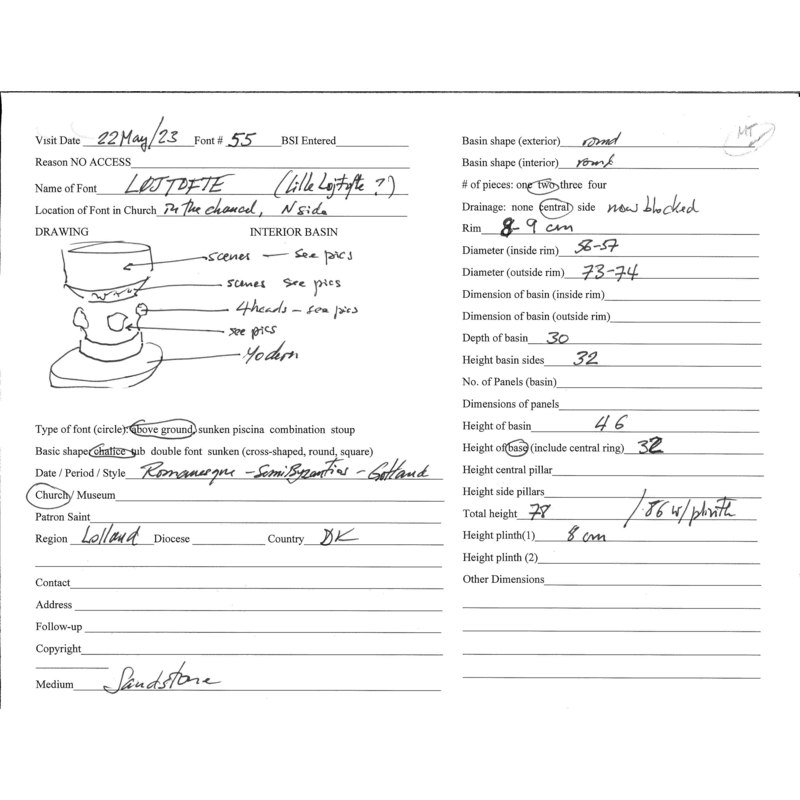 Visit Date 22 May/23 Font # 55 BSI Entered
Reason NO ACCESS
Name of Font LØJTOFTE (Lille Løjtofte ?)
Location of Font in Church in the chancel, N side
DRAWING INTERIOR BASIN
scenes — see pics
scenes see pics
4 heads – see pics
see pics
Modern
Type of font (circle): above ground, sunken piscina combination stoup
Basic shape chalice tub double font sunken (cross-shaped, round, square)
Date / Period / Style Romanesque – Semi Byzantios – Gotland
Church / Museum
Patron Saint
Region Lolland Diocese Country DK
Contact
Address
Follow-up
Copyright
Medium Sandstone
MT
Basin shape (exterior) round
Basin shape (interior) round
# of pieces: one two three four
Drainage: none central side now blocked
Rim 8-9 cm
Diameter (inside rim) 56-57
Diameter (outside rim) 73-74
Dimension of basin (inside rim)
Dimension of basin (outside rim)
Depth of basin 30
Height basin sides 32
No. of Panels (basin)
Dimensions of panels
Height of basin 46
Height of base (include central ring) 32
Height central pillar
Height side pillars
Total height 78 / .86 w/plinth
Height plinth(1) 8 cm
Height plinth (2)
Other Dimensions